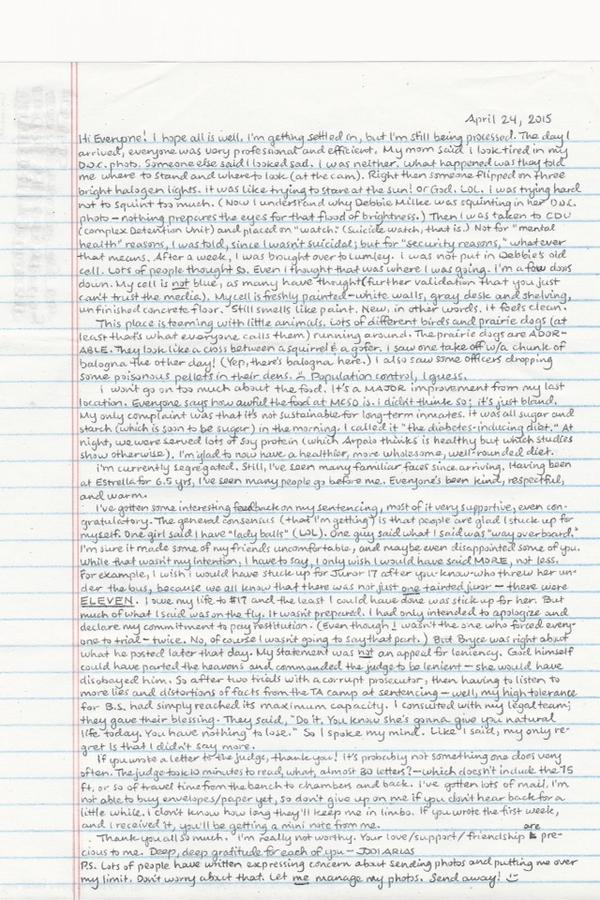 April 24, 2015
Hi Everyone! I hope all is well, I'm getting settled in, but I'm still being processed. The day I
arrived, everyone was very professional and efficient. My mom said I look tired in my
D.O.C. photo. Someone else said I looked sad. I was neither. What happened was they told
me where to stand and where to look (at the cam). Right then someone flipped on three
bright halogen lights. It was like trying to stare at the sun! Or God. LOL. I was trying hard
not to squint too much. (Now I understand why Debbie Milke was squinting in her D.O.C.
photo - nothing prepares the eyes for that flood of brightness.) Then I was taken to CDU
(Complex Detention Unit) and placed on "watch." (Suicide watch, that is.) Not for "mental
health" reasons, I was told, since I wasn't suicidal; but for "security reasons," whatever
that means. After a week, I was brought over to Lumley. I was not put in Debbie's old
cell. Lots of people thought so. Even I thought that was where I was going. I'm a few doors
down. My cell is not blue, as many have thought (further validation that you just
can't trust the media). My cell is freshly painted - white walls, gray desk and shelving,
unfinished concrete floor. Still smells like paint. New, in other words. It feels clean.
This place is teeming with little animals. Lots of different birds and prairie dogs (at
least that's what everyone calls them) running around. The prairie dogs are ADOR-
ABLE. They look like a cross between a squirrel & a gofer. I saw one take off w/a chunk of
balogna the other day! (Yep, there's balogna here.) I also saw some officers dropping
some poisonous pellets in their dens. Population control, I guess.
I won't go on too much about the food. It's a MAJOR improvement from my last
location. Everyone says how awful the food at MCSO is. I didn't think so; it's just bland.
My only complaint was that it's not sustainable for long-term inmates. It was all sugar and
starch (which is soon to be sugar) in the morning. I called it "the diabetes-inducing diet." At
night, we were served lots of soy protein (which Arpaio thinks is healthy but which studies
show otherwise). I'm glad to now have a healthier, more wholesome, well-rounded diet.
I'm currently segregated. Still, I've seen many familiar faces since arriving. Having been
at Estrella for 6.5 yrs, I've seen many people go before me. Everyone's been kind, respectful,
and warm.
I've gotten some interesting feedback on my sentencing, most of it very supportive, even con-
gratulatory. The general consensus (that I'm getting) is that people are glad I stuck up for
myself. One girl said I have "lady balls" (LOL). One guy said what I said was "way overboard."
I'm sure it made some of my friends uncomfortable, and maybe even disappointed some of you.
While that wasn't my intention, I have to say, I only wish I would have said MORE, not less.
For example, I wish I would have stuck up for Juror 17 after you-know-who threw her un-
der the bus, because we all know that there was not just one tainted juror - there were
ELEVEN. I owe my life to #17 and the least I could have done was stick up for her. But
much of what I said was on the fly. It wasn't prepared. I had only intended to apologize and
declare my commitment to pay restitution. (Even though I wasn't the one who forced every-
one to trial - twice. No, of course I wasn't going to say that part.) But Bryce was right about
what he posted later that day. My statement was not an appeal for leniency. God himself
could have parted the heavens and commanded the judge to be lenient - she would have
disobeyed him. So after two trials with a corrupt prosecutor, then having to listen to
more lies and distortions of facts from the TA camp at sentencing - well, my high tolerance
for B.S. had simply reached its maximum capacity. I consulted with my legal team;
they gave their blessing. They said, "Do it. You know she's gonna give you natural
life today. You have nothing to lose." So I spoke my mind. Like I said, my only re-
gret is that I didn't say more.
If you wrote a letter to the judge, thank you! It's probably not something one does very
often. The judge took 10 minutes to read, what, almost 30 letters? - which doesn't include the 75
ft, or so of travel time from the bench to chambers and back. I've gotten lots of mail. I'm
not able to buy envelopes/paper yet, so don't give up on me if you don't hear back for a
little while. I don't know how long they'll keep me in limbo. If you wrote the first week,
and I received it, you'll be getting a mini note from me.
Thank you all so much. I'm really not worthy. Your love/support/friendship are pre-
cious to me. Deep, deep gratitude for each of you - JODI ARIAS
P.S. Lots of people have written expressing concern about sending photos and putting me over
my limit. Don't worry about that. Let me manage my photos. Send away!